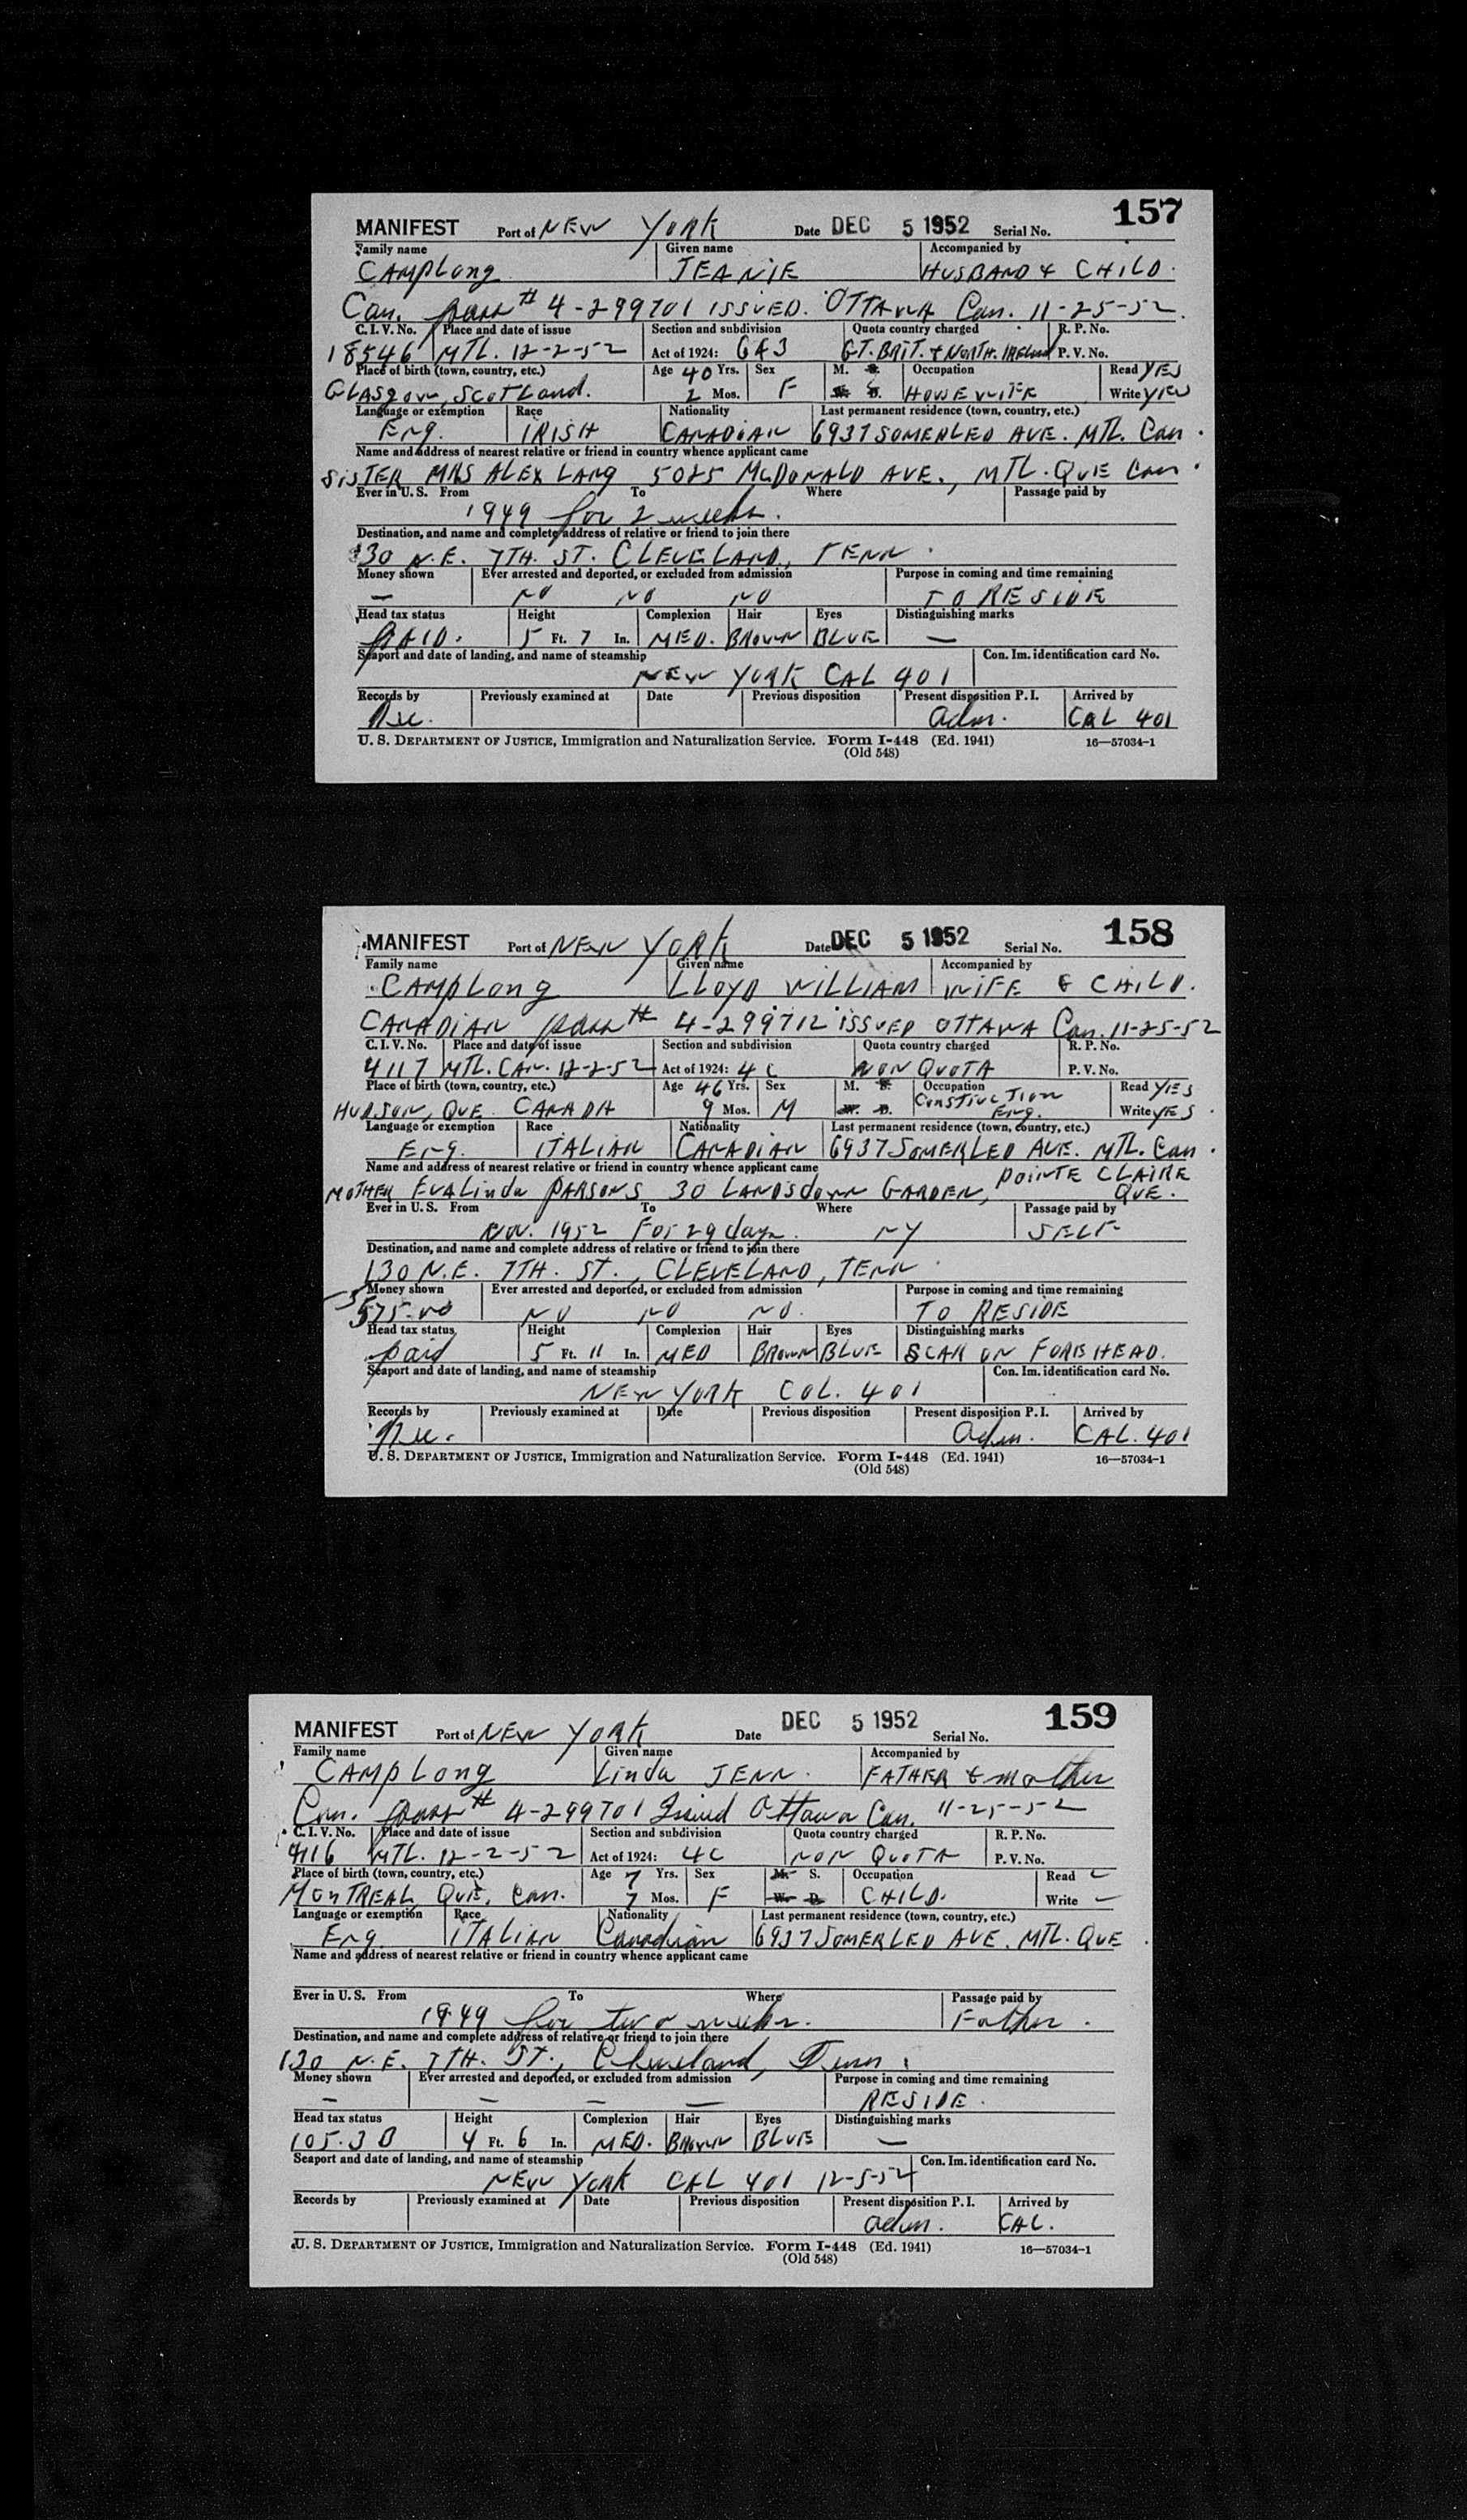 MANIFEST Port of NEW YORK Date DEC 5 1952 Serial No. 157
Family name Given name Accompanied by
CAMPLong JEANIE HUSBAND & CHILD.
Can. pass # 4-299701 ISSUED. OTTAWA Can. 11-25-52.
C. I. V. No. Place and date of issue Section and subdivision Quota country charged R. P. No.
18546 MTL. 12-2-52 Act of 1924: 6A3 GT. BRIT. & NORTH. IRELand P. V. No.
Place of birth (town, country, etc.) Age 40 Yrs. Sex M. S. Occupation Read YES
GLASgow, SCOTLand. 2 Mos. F W. D. HOUSEWIFE Write YES
Language or exemption Race Nationality Last permanent residence (town, country, etc.)
Eng. IRISH CANADIAN 6937 SOMERLED AVE. MTL. Can.
Name and address of nearest relative or friend in country whence applicant came
SISTER MRS ALEX LANG 5085 McDONALD AVE., MTL. QUE Can.
Ever in U. S. From To Where Passage paid by
1949 for 2 weeks.
Destination, and name and complete address of relative or friend to join there
130 N.E. 7TH. ST. CLEVELAND, TENN.
Money shown Ever arrested and deported, or excluded from admission Purpose in coming and time remaining
— NO NO NO TO RESIDE
Head tax status Height Complexion Hair Eyes Distinguishing marks
PAID. 5 Ft. 7 In. MED. BROWN BLUE —
Seaport and date of landing, and name of steamship Con. Im. identification card No.
NEW YORK CAL 401
Records by Previously examined at Date Previous disposition Present disposition P. I. Arrived by
Adm. CAL 401
U. S. DEPARTMENT OF JUSTICE, Immigration and Naturalization Service. Form I-448 (Ed. 1941) 16—57034-1
(Old 548)
MANIFEST Port of NEW YORK Date DEC 5 1952 Serial No. 158
Family name Given name Accompanied by
CAMPLong LLOYD WILLIAM WIFE & CHILD.
CANADIAN pass # 4-299712 ISSUED OTTAWA Can. 11-25-52
C. I. V. No. Place and date of issue Section and subdivision Quota country charged R. P. No.
4117 MTL. CAN. 12-2-52 Act of 1924: 4C NON QUOTA P. V. No.
Place of birth (town, country, etc.) Age 46 Yrs. Sex M. S. Occupation Read YES
HUDSON, QUE. CANADA 9 Mos. M W. D. CONSTIUCTION Eng. Write YES.
Language or exemption Race Nationality Last permanent residence (town, country, etc.)
Eng. ITALIAN CANADIAN 6937 SOMERLED AVE. MTL. Can.
Name and address of nearest relative or friend in country whence applicant came
MOTHER EVALinda PARSONS 30 LANDSdown GARDEN, POINTE CLAIRE QUE.
Ever in U. S. From To Where Passage paid by
NOV. 1952 For 29 days. NY SELF
Destination, and name and complete address of relative or friend to join there
130 N.E. 7TH. ST., CLEVELAND, TENN.
Money shown Ever arrested and deported, or excluded from admission Purpose in coming and time remaining
NO NO NO. TO RESIDE
Head tax status Height Complexion Hair Eyes Distinguishing marks
paid 5 Ft. 11 In. MED BROWN BLUE SCAR ON FOREHEAD.
Seaport and date of landing, and name of steamship Con. Im. identification card No.
NEW YORK COL. 401
Records by Previously examined at Date Previous disposition Present disposition P. I. Arrived by
Adm. CAL. 401
U. S. DEPARTMENT OF JUSTICE, Immigration and Naturalization Service. Form I-448 (Ed. 1941) 16—57034-1
(Old 548)
MANIFEST Port of NEW YORK Date DEC 5 1952 Serial No. 159
Family name Given name Accompanied by
CAMPLong Linda JENN. FATHER & mother
Can. pass # 4-299701 Issued Ottawa Can. 11-25-52
C. I. V. No. Place and date of issue Section and subdivision Quota country charged R. P. No.
4116 MTL. 12-2-52 Act of 1924: 4C NON QUOTA P. V. No.
Place of birth (town, country, etc.) Age 7 Yrs. Sex M. S. Occupation Read —
MONTREAL QUE. Can. 7 Mos. F W. D. CHILD. Write —
Language or exemption Race Nationality Last permanent residence (town, country, etc.)
Eng. ITALIAN Canadian 6937 SOMERLED AVE. MTL. QUE
Name and address of nearest relative or friend in country whence applicant came
Ever in U. S. From To Where Passage paid by
1949 for two weeks. Father.
Destination, and name and complete address of relative or friend to join there
130 N.E. 7TH. ST., Cleveland, Tenn.
Money shown Ever arrested and deported, or excluded from admission Purpose in coming and time remaining
— — — — RESIDE.
Head tax status Height Complexion Hair Eyes Distinguishing marks
105.3 B 4 Ft. 6 In. MED. BROWN BLUE —
Seaport and date of landing, and name of steamship Con. Im. identification card No.
NEW YORK CAL 401 12-5-52
Records by Previously examined at Date Previous disposition Present disposition P. I. Arrived by
adm. CAL.
U. S. DEPARTMENT OF JUSTICE, Immigration and Naturalization Service. Form I-448 (Ed. 1941) 16—57034-1
(Old 548)